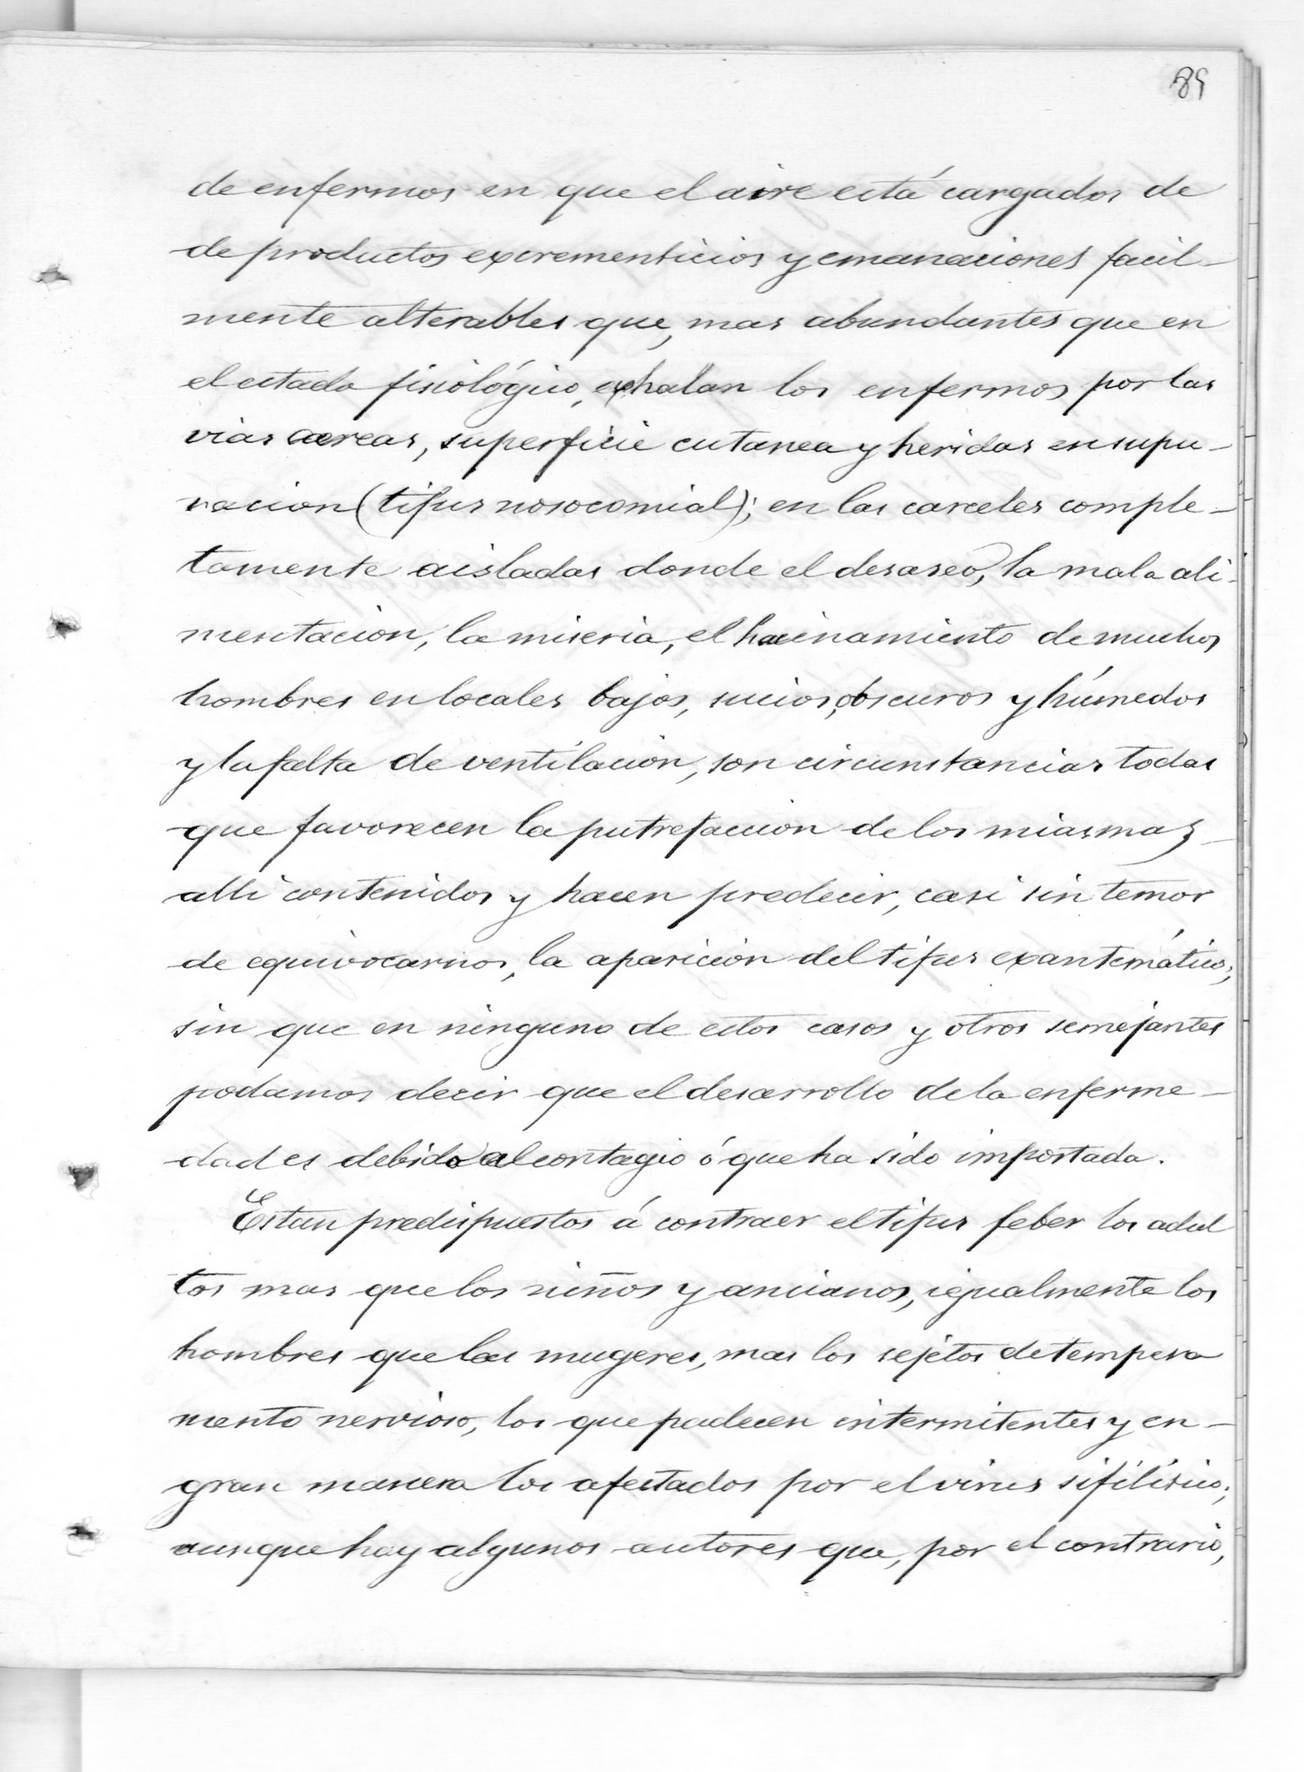 89
de enfermos en que el aire está cargados de
de productos excrementicios y emanaciones facil-
mente alterables que, mas abundantes que en
el estado fisiológico, exhalan los enfermos por las
vias aereas, superficie cutanea y heridas en supu-
racion (tifus nosocomial); en las carceles comple-
tamente aisladas donde el desaseo, la mala ali-
mentacion, la miseria, el hacinamiento de muchos
hombres en locales bajos, sucios, obscuros y húmedos
y la falta de ventilacion, son circunstancias todas
que favorecen la putrefaccion de los miasmas
alli contenidos y hacen predecir, casi sin temor
de equivocarnos, la aparicion del tifus exantemático;
sin que en ninguno de estos casos y otros semejantes
podamos decir que el desarrollo de la enferme-
dad es debido al contagio ó que ha sido importada.
Estan predispuestos á contraer el tifus feber los adul
tos mas que los niños y ancianos, igualmente los
hombres que las mugeres, mas los sejetos de tempera
mento nervioso, los que padecen intermitentes y en-
gran manera los afectados por el virus sifilítico;
aunque hay algunos autores que, por el contrario,